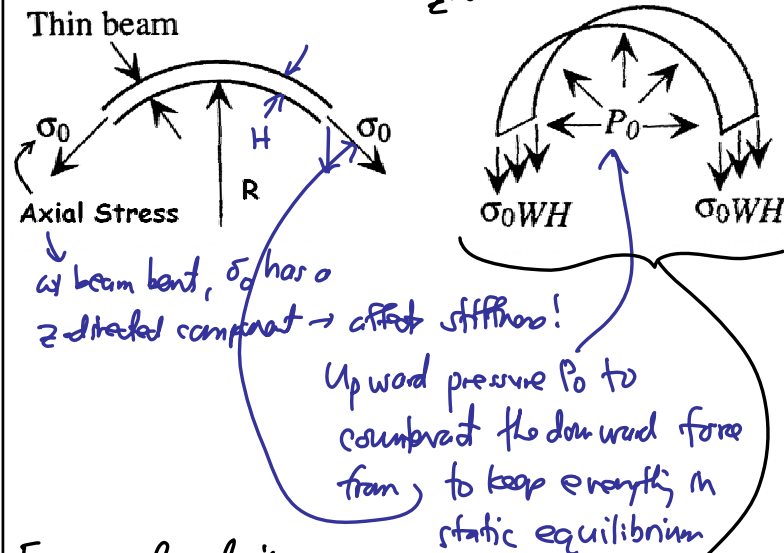 Thin beam
σ₀
H
σ₀
R
Axial Stress
P₀
σ₀WH
σ₀WH
as beam bent, σ₀ has a
z-directed component → affect stiffness!
Upward pressure P₀ to
counteract the downward force
from , to keep everything in
static equilibrium